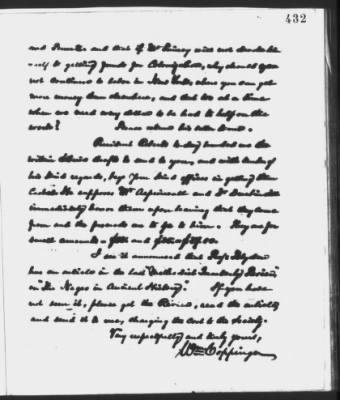 432
and Penna. and that if Mr. Pinney will not devote him
-self to getting funds for Colonization, why should you
not continue to labor in New York, where you can get
more money than elsewhere, and that too at a time
when we need every dollar to be had to help on the
work? Please return his letter
President Roberts to day handed me the
within
his kind regards, begs your kind offices in getting them
cashed. He supposes Mr. Aspinwall and Dr.
immediately honor them upon learning that they came
from and the proceeds are to go to him. They are for
small amounts
I see it announced that Prof. Blyden
has an article in the last "Methodist Quarterly Review"
on "The Negro in Ancient History." If you have
not seen it, please get the Review, read the article
and send it to me, charging the cost to the Society.
Very respectfully and truly yours,
Wm. Coppinger